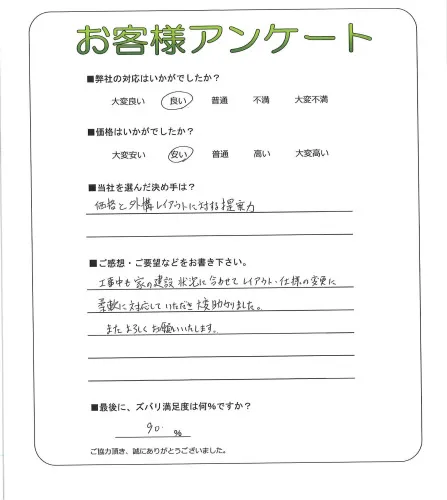 お客様アンケート
■弊社の対応はいかがでしたか？
大変良い 良い 普通 不満 大変不満
■価格はいかがでしたか？
大変安い 安い 普通 高い 大変高い
■当社を選んだ決め手は？
価格と外構レイアウトに対する提案力
■ご感想・ご要望などをお書き下さい。
工事中も家の建設状況に合わせてレイアウト・仕様の変更に
柔軟に対応していただき大変助かりました。
またよろしくお願いいたします。
■最後に、ズバリ満足度は何%ですか？
90 %
ご協力頂き、誠にありがとうございました。